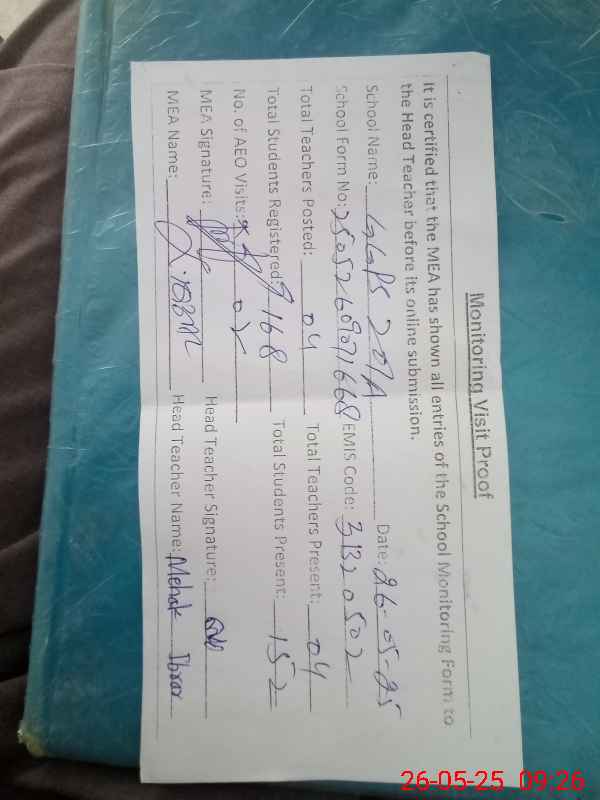 Monitoring Visit Proof
It is certified that the MEA has shown all entries of the School Monitoring Form to
the Head Teacher before its online submission.
School Name: GGPS 207A Date: 26-05-25
School Form No: 25052609071668 EMIS Code: 31320502
Total Teachers Posted: 04 Total Teachers Present: 04
Total Students Registered: 168 Total Students Present: 152
No. of AEO Visits: 02
MEA Signature: Head Teacher Signature:
MEA Name: Head Teacher Name: Mehak
26-05-25 09:26